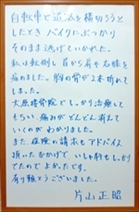 自転車で道路を横切ろう
としたときバイクにぶつかり
そのまま逃げていかれた。
私は転倒し首から肩や右膝を
痛めました。胸の骨が2本折れて
しまった。
大原接骨院でしっかり治療して
もらい、痛みがどんどん消えて
いくのがわかりました。
また、保険の請求もアドバイス
頂いたおかげで いち利もしかり
でたのでよかったです。
有り難うございました。
片山正昭